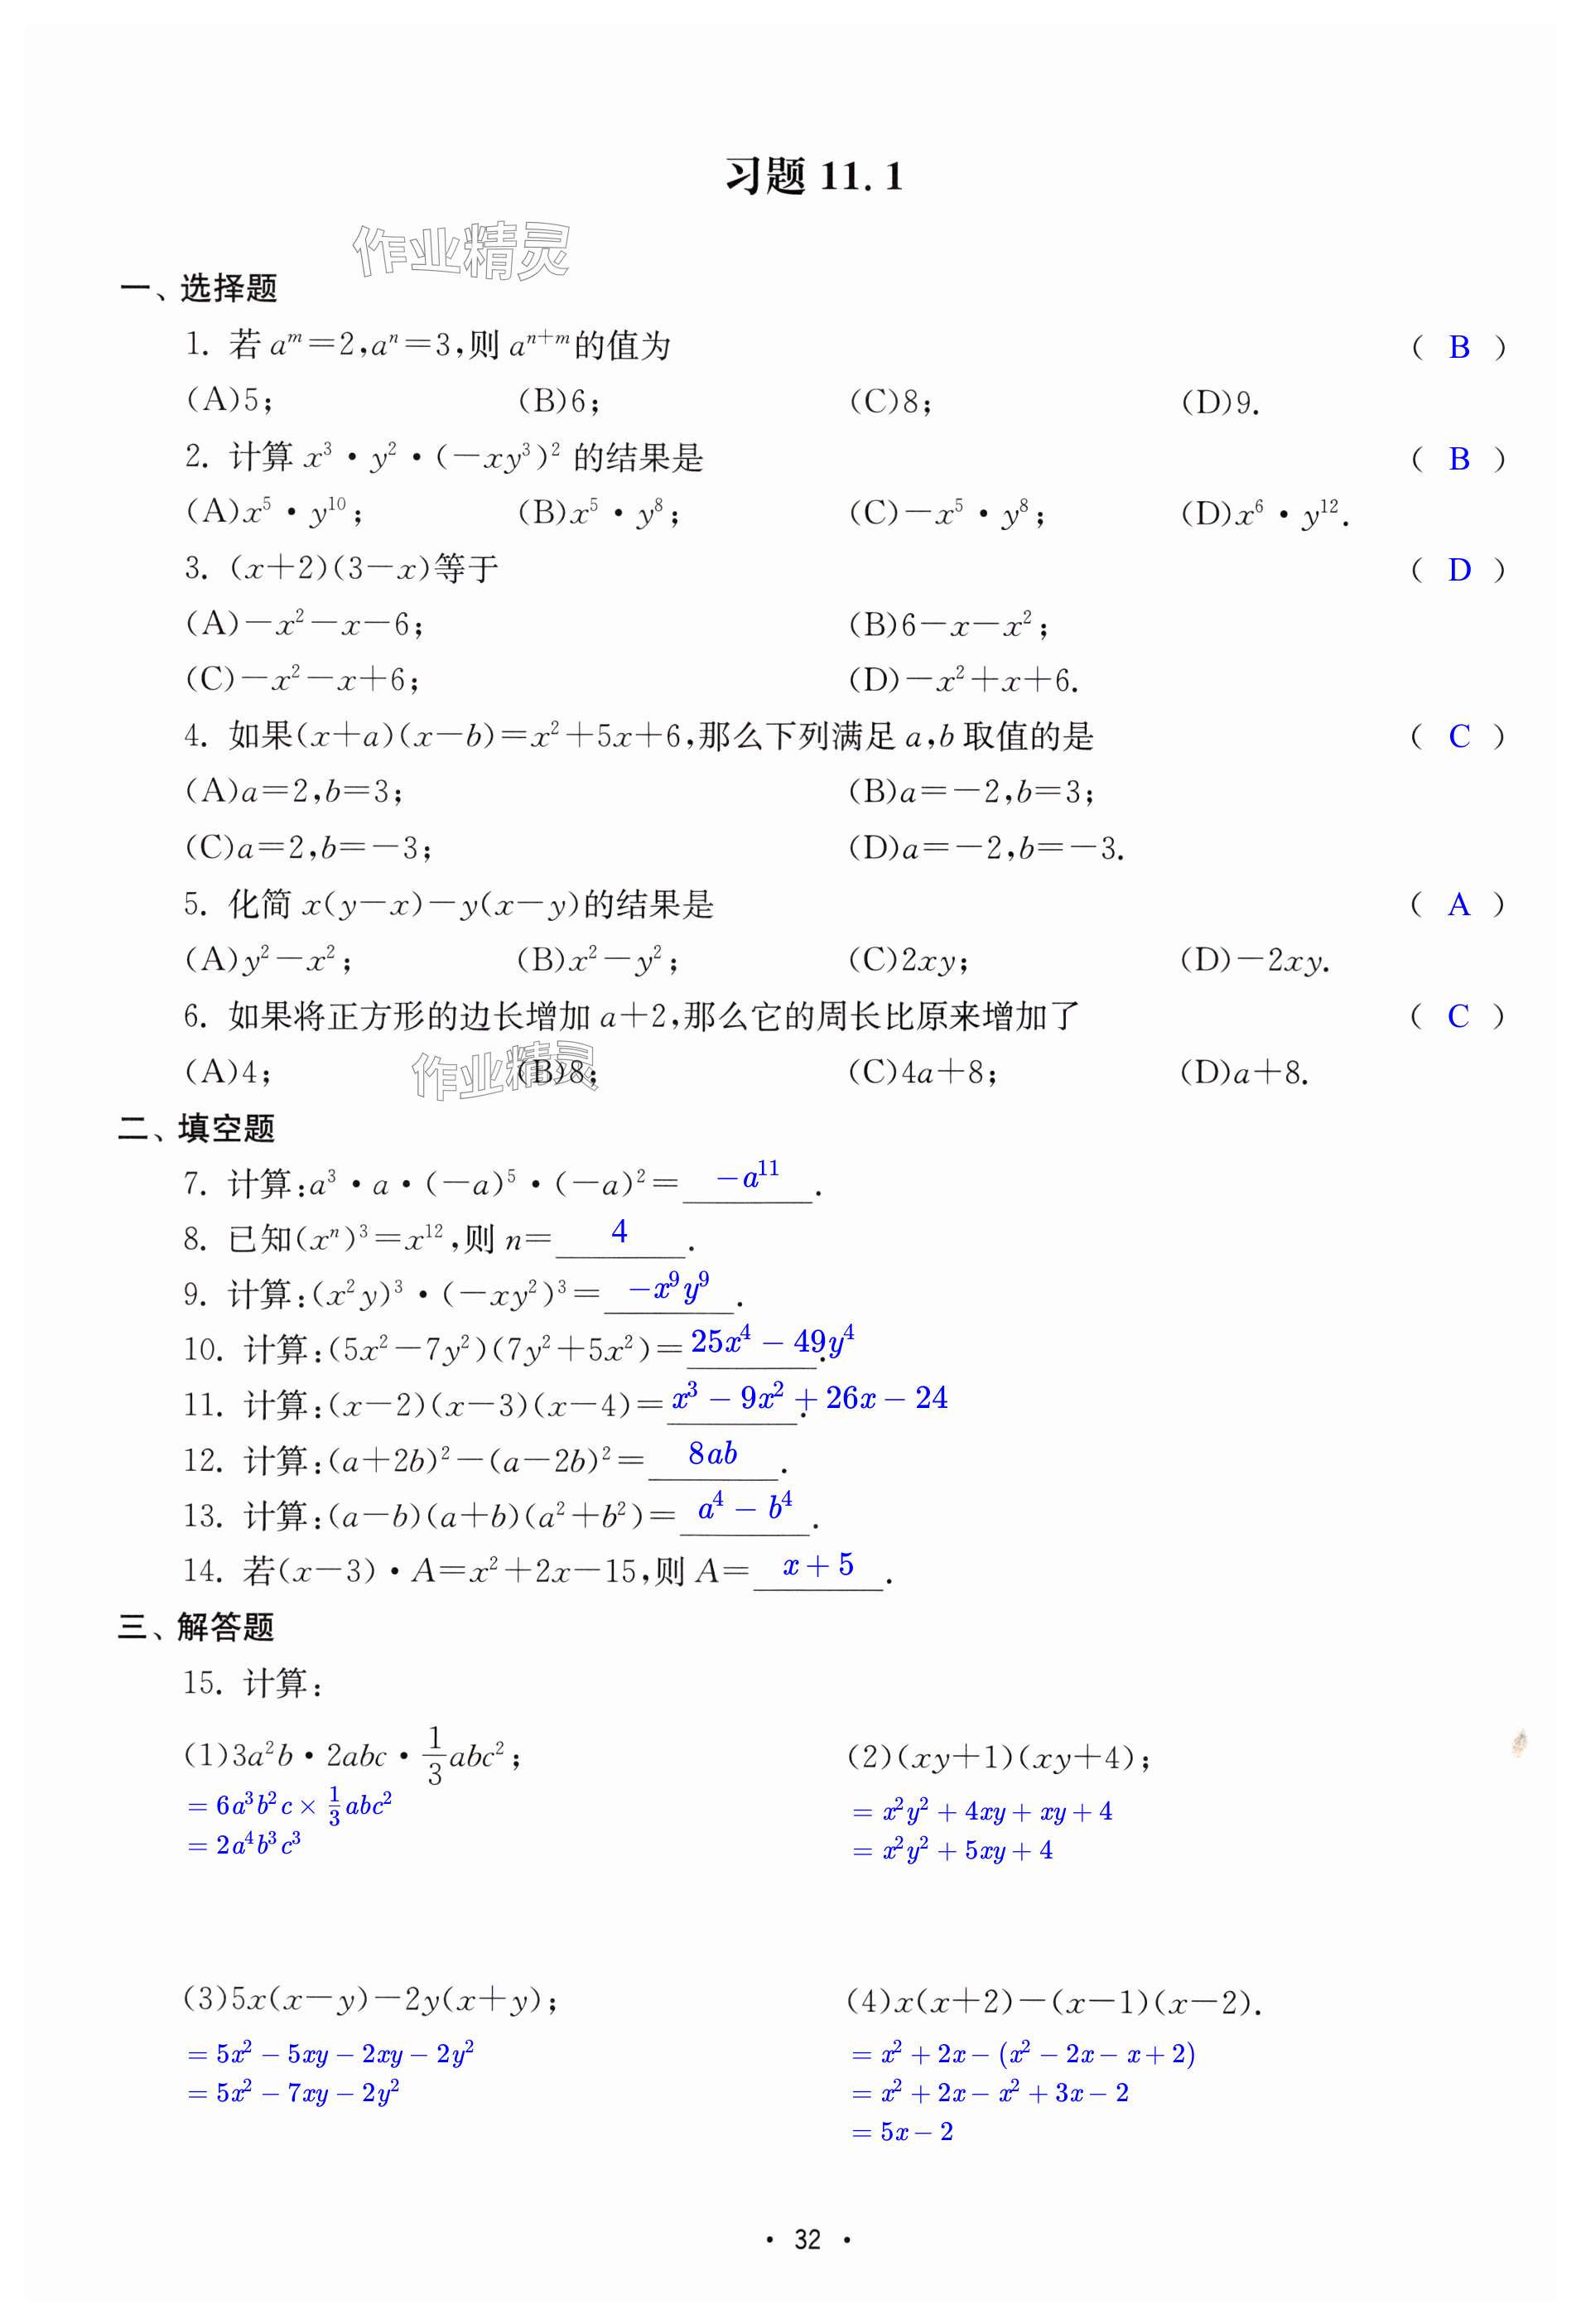 习题 11.1
作业精灵
一、选择题
1. 若 aᵐ=2,aⁿ=3,则 aⁿ⁺ᵐ的值为 ( B )
(A)5; (B)6; (C)8; (D)9.
2. 计算 x³·y²·(-xy³)² 的结果是 ( B )
(A)x⁵·y¹⁰; (B)x⁵·y⁸; (C)-x⁵·y⁸; (D)x⁶·y¹².
3. (x+2)(3-x)等于 ( D )
(A)-x²-x-6; (B)6-x-x²;
(C)-x²-x+6; (D)-x²+x+6.
4. 如果(x+a)(x-b)=x²+5x+6,那么下列满足 a,b 取值的是 ( C )
(A)a=2,b=3; (B)a=-2,b=3;
(C)a=2,b=-3; (D)a=-2,b=-3.
5. 化简 x(y-x)-y(x-y)的结果是 ( A )
(A)y²-x²; (B)x²-y²; (C)2xy; (D)-2xy.
6. 如果将正方形的边长增加 a+2,那么它的周长比原来增加了 ( C )
(A)4; 作业精灵 (B)8; (C)4a+8; (D)a+8.
二、填空题
7. 计算:a³·a·(-a)⁵·(-a)²= -a¹¹ .
8. 已知(xⁿ)³=x¹²,则 n= 4 .
9. 计算:(x²y)³·(-xy²)³= -x⁹y⁹ .
10. 计算:(5x²-7y²)(7y²+5x²)= 25x⁴-49y⁴ .
11. 计算:(x-2)(x-3)(x-4)= x³-9x²+26x-24 .
12. 计算:(a+2b)²-(a-2b)²= 8ab .
13. 计算:(a-b)(a+b)(a²+b²)= a⁴-b⁴ .
14. 若(x-3)·A=x²+2x-15,则 A= x+5 .
三、解答题
15. 计算:
(1)3a²b·2abc·1/3abc²; (2)(xy+1)(xy+4);
=6a³b²c×1/3abc² =x²y²+4xy+xy+4
=2a⁴b³c³ =x²y²+5xy+4
(3)5x(x-y)-2y(x+y); (4)x(x+2)-(x-1)(x-2).
=5x²-5xy-2xy-2y² =x²+2x-(x²-2x-x+2)
=5x²-7xy-2y² =x²+2x-x²+3x-2
=5x-2
· 32 ·